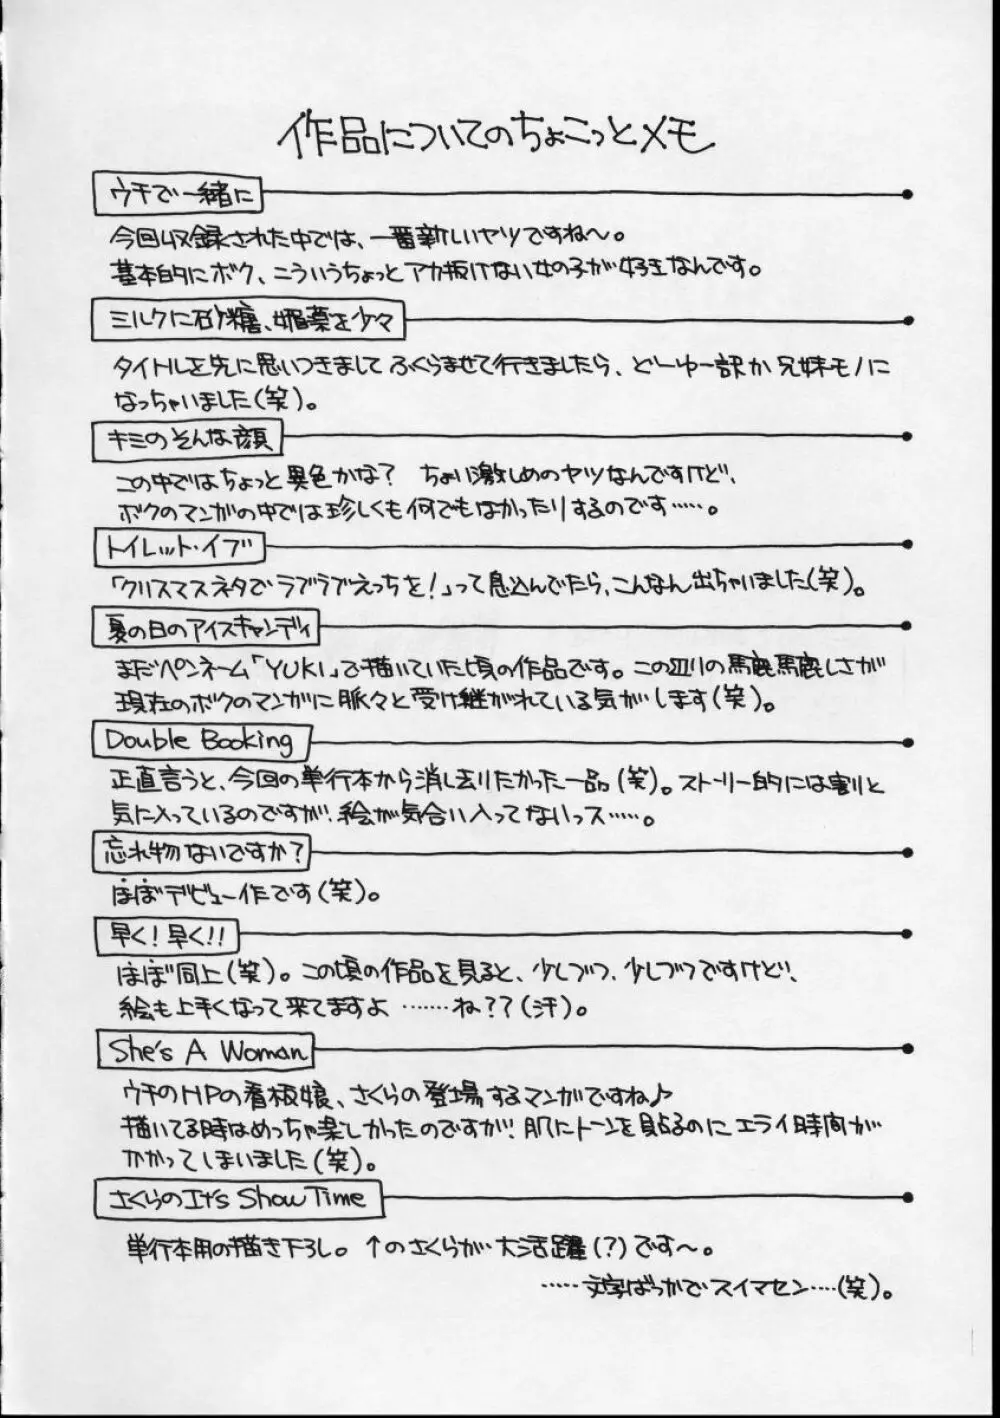 作品についてのちょこっとメモ
ウチで一緒に
今回収録された中では、一番新しいヤツですね〜。
基本的にボク、こういうちょっとアカ抜けない女の子が好きなんです。
ミルクに砂糖、媚薬を少々
タイトルを先に思いつきましてふくらませて行きましたら、どーゆー訳か兄妹モノに
なっちゃいました(笑)。
キミのそんな顔
この中ではちょっと異色かな? ちょい激しめのヤツなんですけど、
ボクのマンガの中では珍しくも何でもなかったりするのです……。
トイレット・イブ
「クリスマスネタでラブラブえっちを!」って息込んでたら、こんなん出ちゃいました(笑)。
夏の日のアイスキャンディ
まだペンネーム「YUKI」で描いていた頃の作品です。この辺の馬鹿馬鹿しさが
現在のボクのマンガに脈々と受け継がれている気がします(笑)。
Double Booking
正直言うと、今回の単行本から消し去りたかった一品(笑)。ストーリー的には割と
気に入っているのですが、絵が気合い入ってないっス……。
忘れ物ないですか?
ほぼデビュー作です(笑)。
早く!早く!!
ほぼ同上(笑)。この頃の作品を見ると、少しづつ、少しづつですけど、
絵も上手くなって来てますよ……ね??(汗)。
She's A Woman
ウチのHPの看板娘、さくらの登場するマンガですね♪
描いてる時はめっちゃ楽しかったのですが、肌にトーンを貼るのにエライ時間が
かかってしまいました(笑)。
さくらのIt's Show Time
単行本用の描き下ろし。↑のさくらが大活躍(?)です〜。
……文字ばっかでスイマセン……(笑)。